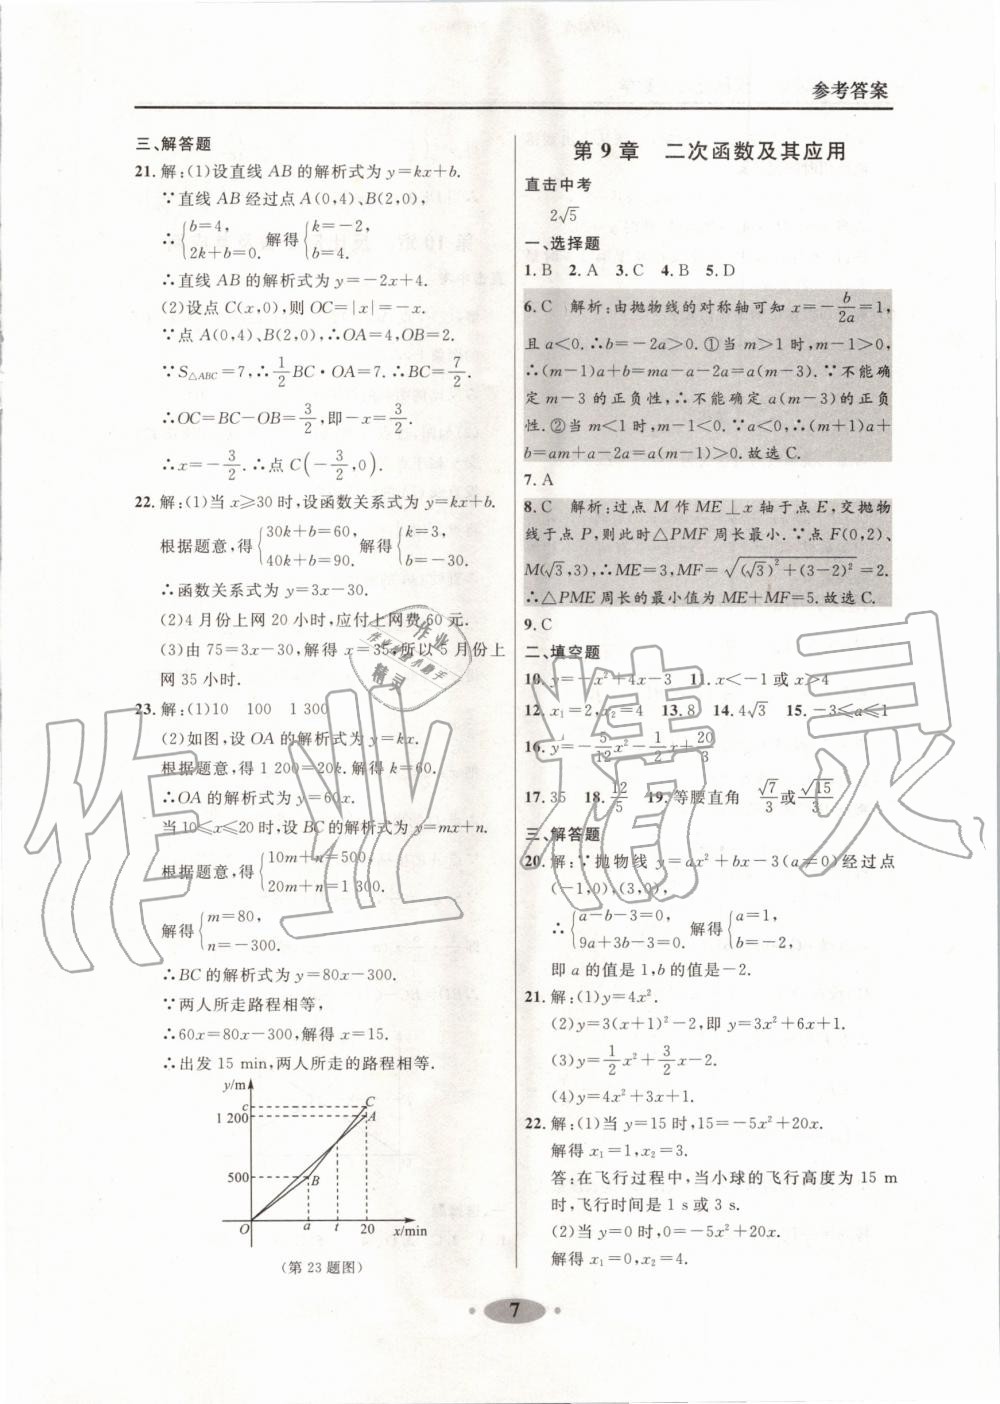 参考答案
三、解答题
21. 解:(1)设直线 AB 的解析式为 y=kx+b.
∵直线 AB 经过点 A(0,4)、B(2,0),
∴{b=4, 2k+b=0. 解得{k=-2, b=4.
∴直线 AB 的解析式为 y=-2x+4.
(2)设点 C(x,0),则 OC=|x|=-x.
∵点 A(0,4)、B(2,0),∴OA=4,OB=2.
∵S△ABC=7,∴1/2 BC·OA=7.∴BC=7/2.
∴OC=BC-OB=3/2,即-x=3/2.
∴x=-3/2.∴点 C(-3/2,0).
22. 解:(1)当 x≥30 时,设函数关系式为 y=kx+b.
根据题意,得{30k+b=60, 40k+b=90. 解得{k=3, b=-30.
∴函数关系式为 y=3x-30.
(2)4 月份上网 20 小时,应付上网费 60 元.
(3)由 75=3x-30,解得 x=35,所以 5 月份上
网 35 小时.
23. 解:(1)10 100 1 300
(2)如图,设 OA 的解析式为 y=kx.
根据题意,得 1 200=20k.解得 k=60.
∴OA 的解析式为 y=60x.
当 10≤x≤20 时,设 BC 的解析式为 y=mx+n.
根据题意,得{10m+n=500, 20m+n=1 300.
解得{m=80, n=-300.
∴BC 的解析式为 y=80x-300.
∵两人所走路程相等,
∴60x=80x-300,解得 x=15.
∴出发 15 min,两人所走的路程相等.
y/m
c
C
1 200
A
500
B
O a t 20 x/min
(第 23 题图)
第 9 章 二次函数及其应用
直击中考
2√5
一、选择题
1. B 2. A 3. C 4. B 5. D
6. C 解析:由抛物线的对称轴可知 x=-b/2a=1,
且 a<0.∴b=-2a>0.①当 m>1 时,m-1>0.
∴(m-1)a+b=ma-a-2a=a(m-3).∵不能确
定 m-3 的正负性,∴不能确定 a(m-3)的正负
性.②当 m<1 时,m-1<0.∵a<0,∴(m+1)a+
b=am+a-2a=a(m-1)>0.故选 C.
7. A
8. C 解析:过点 M 作 ME⊥x 轴于点 E,交抛物
线于点 P,则此时△PMF 周长最小.∵点 F(0,2)、
M(√3,3),∴ME=3,MF=√((√3)²+(3-2)²)=2.
∴△PME 周长的最小值为 ME+MF=5.故选 C.
9. C
二、填空题
10. y=-x²+4x-3 11. x<-1 或 x>4
12. x₁=2,x₂=4 13. 8 14. 4√3 15. -3≤a≤1
16. y=-5/12x²-1/2x+20/3
17. 35 18. 12/5 19. 等腰直角 √7/3或√15/3
三、解答题
20. 解:∵抛物线 y=ax²+bx-3(a≠0)经过点
(-1,0),(3,0),
∴{a-b-3=0, 9a+3b-3=0. 解得{a=1, b=-2.
即 a 的值是 1,b 的值是-2.
21. 解:(1)y=4x².
(2)y=3(x+1)²-2,即 y=3x²+6x+1.
(3)y=1/2x²+3/2x-2.
(4)y=4x²+3x+1.
22. 解:(1)当 y=15 时,15=-5x²+20x.
解得 x₁=1,x₂=3.
答:在飞行过程中,当小球的飞行高度为 15 m
时,飞行时间是 1 s 或 3 s.
(2)当 y=0 时,0=-5x²+20x.
解得 x₁=0,x₂=4.
7
作业精灵